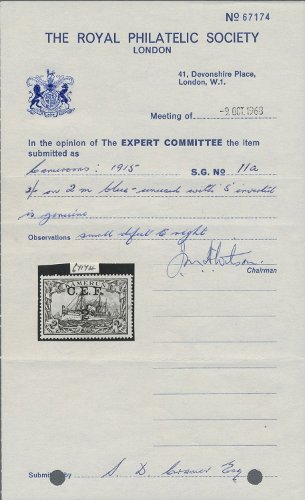 No 67174
THE ROYAL PHILATELIC SOCIETY
LONDON
41, Devonshire Place,
London, W.1.
Meeting of -9 OCT. 1968
In the opinion of The EXPERT COMMITTEE the item
submitted as
Cameroons: 1915 S.G. No 11a
2/- on 2m blue - unused with 'S' inverted
is genuine
Observations small defect to right
Chairman
C.E.F.
Submitted by S. D. Cramer Esq